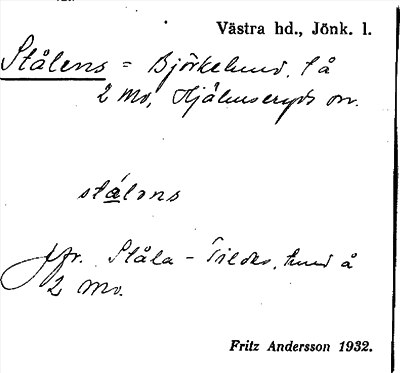 Västra hd., Jönk. l.
Stålens = Björkelund, t å
2 Mo, Hjälmseryds sn.
stálons
jfr. Ståla -
2 Mo.
Fritz Andersson 1932.